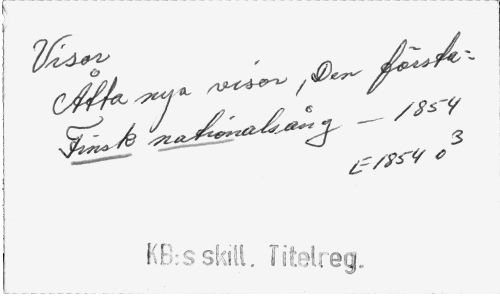 Visor
Åtta nya visor, Den första:
Finsk nationalsång — 1854
E 1854 o 3
KB:s skill. Titelreg.